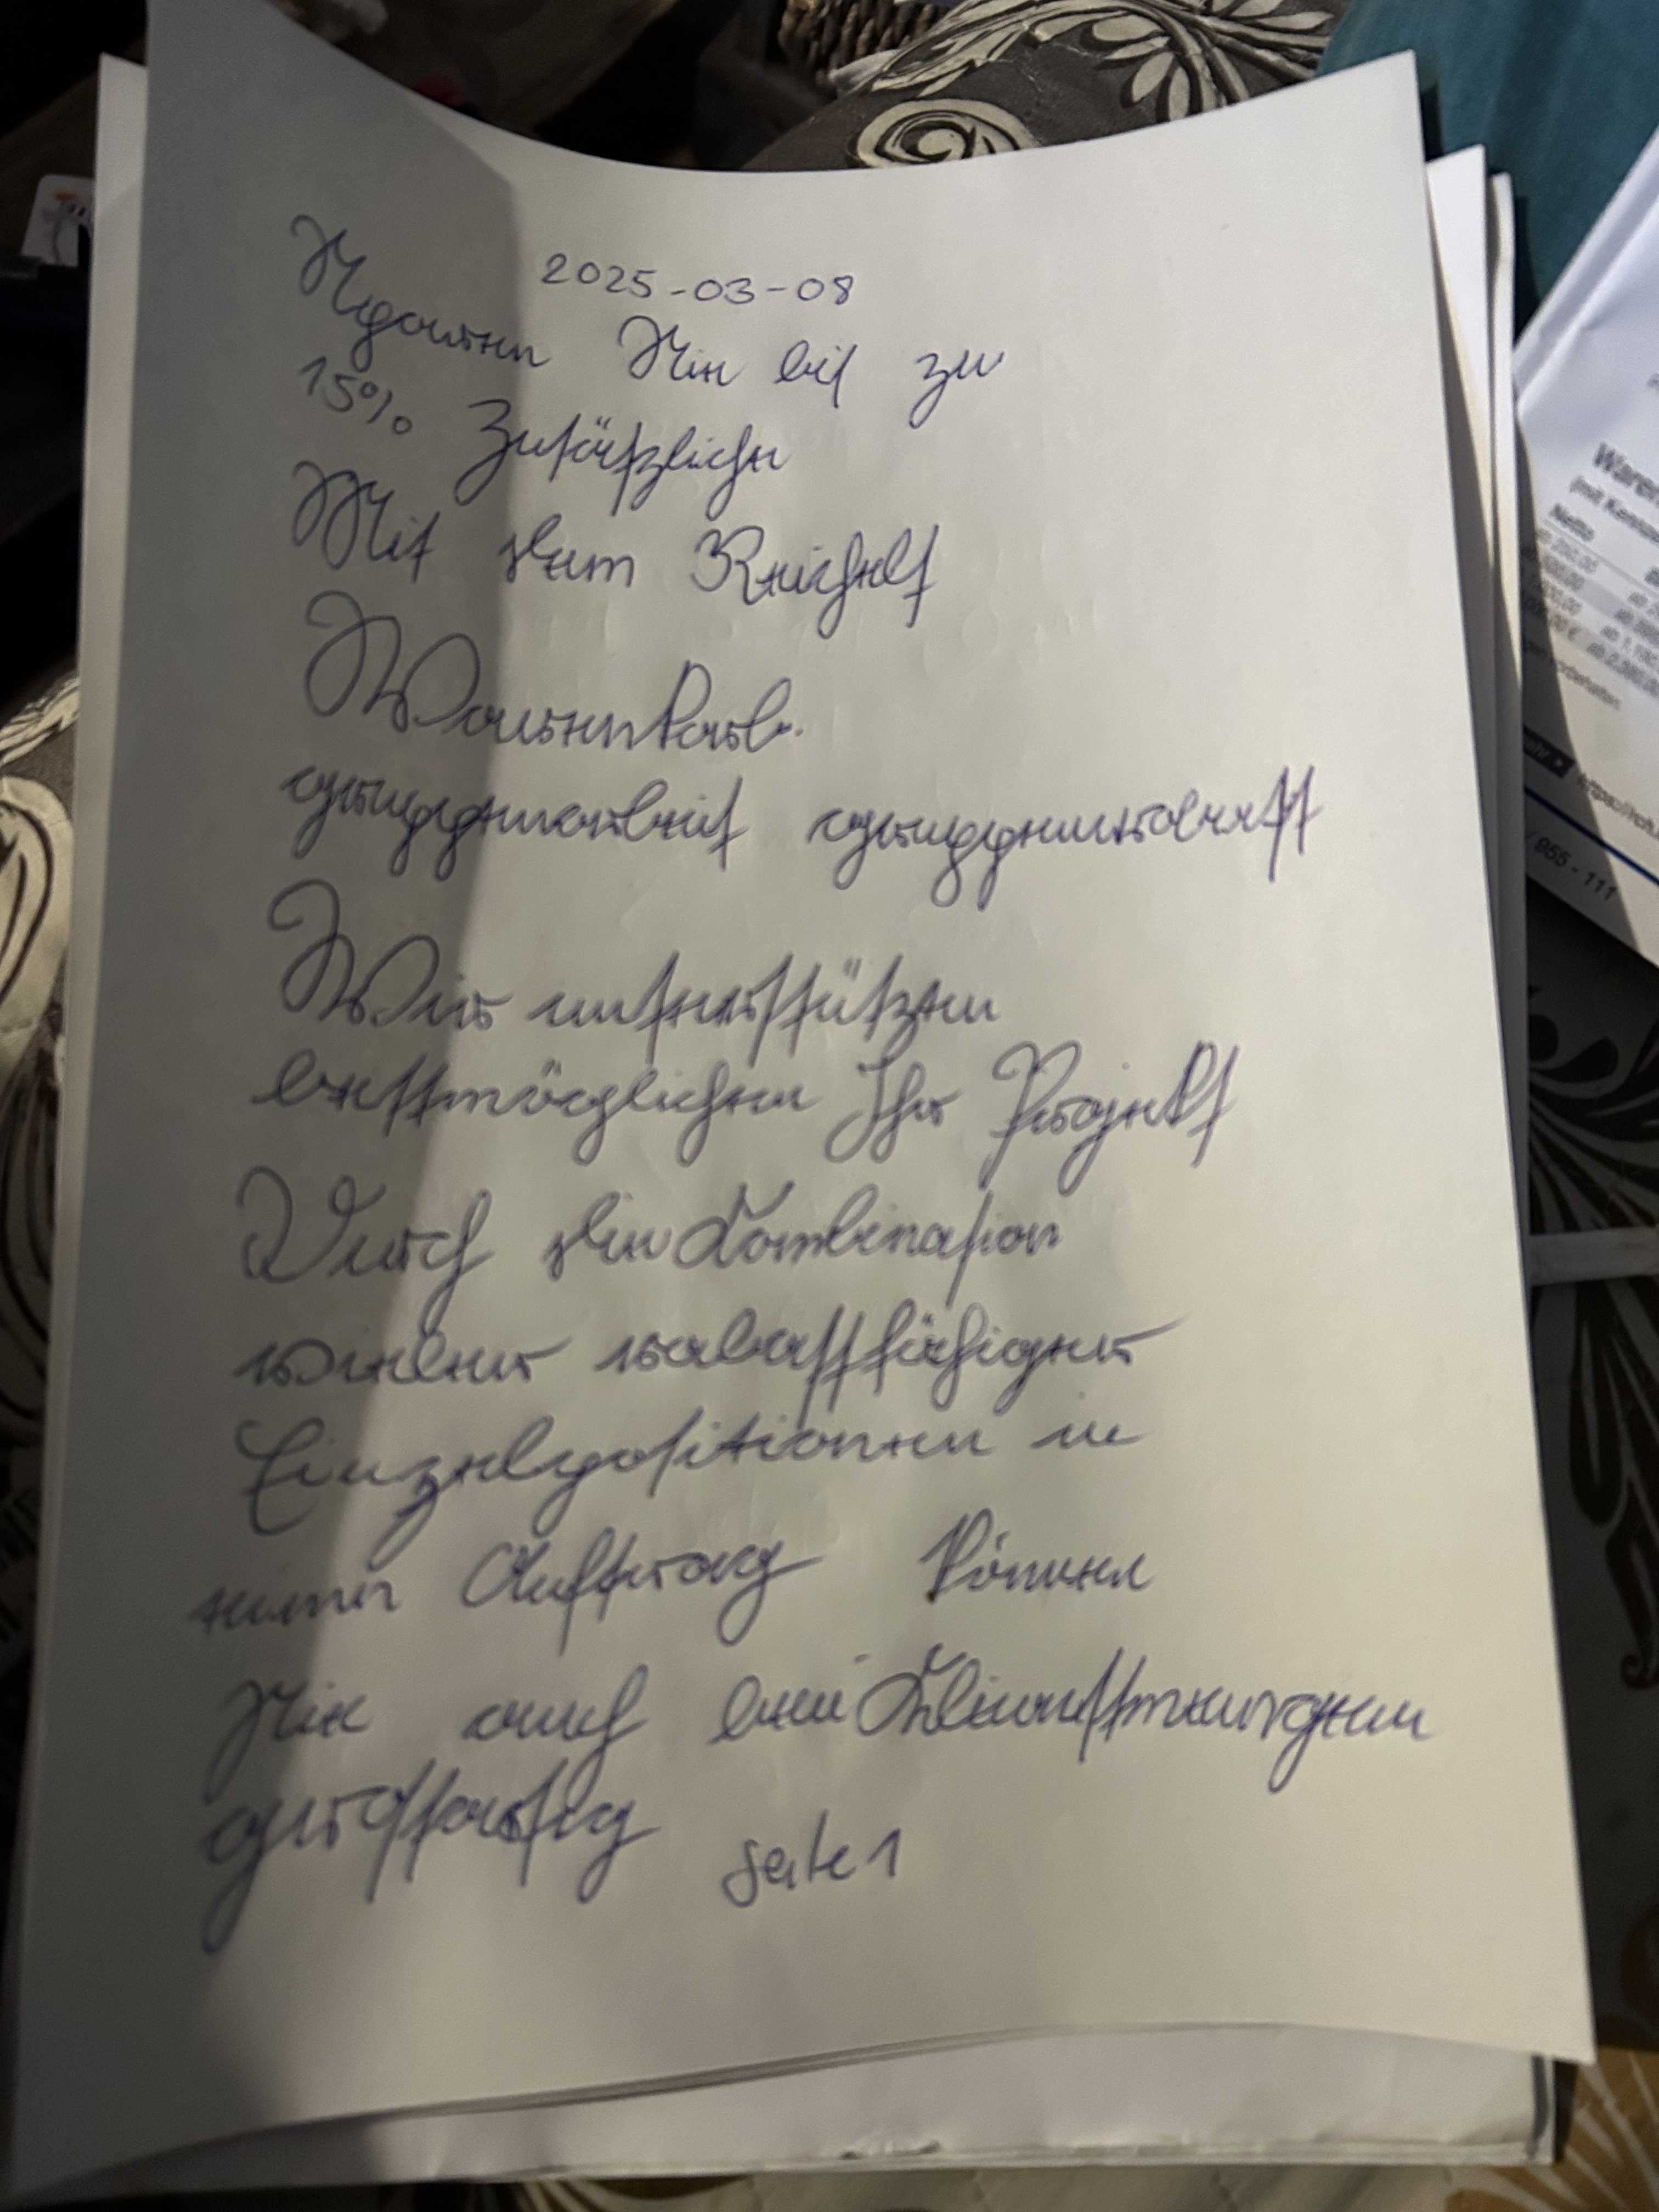 2025-03-08
Sparen Sie bis zu
15% Zusätzliche
Mit dem Reichelt
Warenkorb.
gruppenarbeit gruppenrabatt
Wir unterstützen
bestmöglichen Ihr Projekt
Durch die Kombination
vieler rabattfähiger
Einzelpositionen in
einen Auftrag können
Sie auch bei Kleinstmengen
großartig
seite 1
Netto
955 - 111